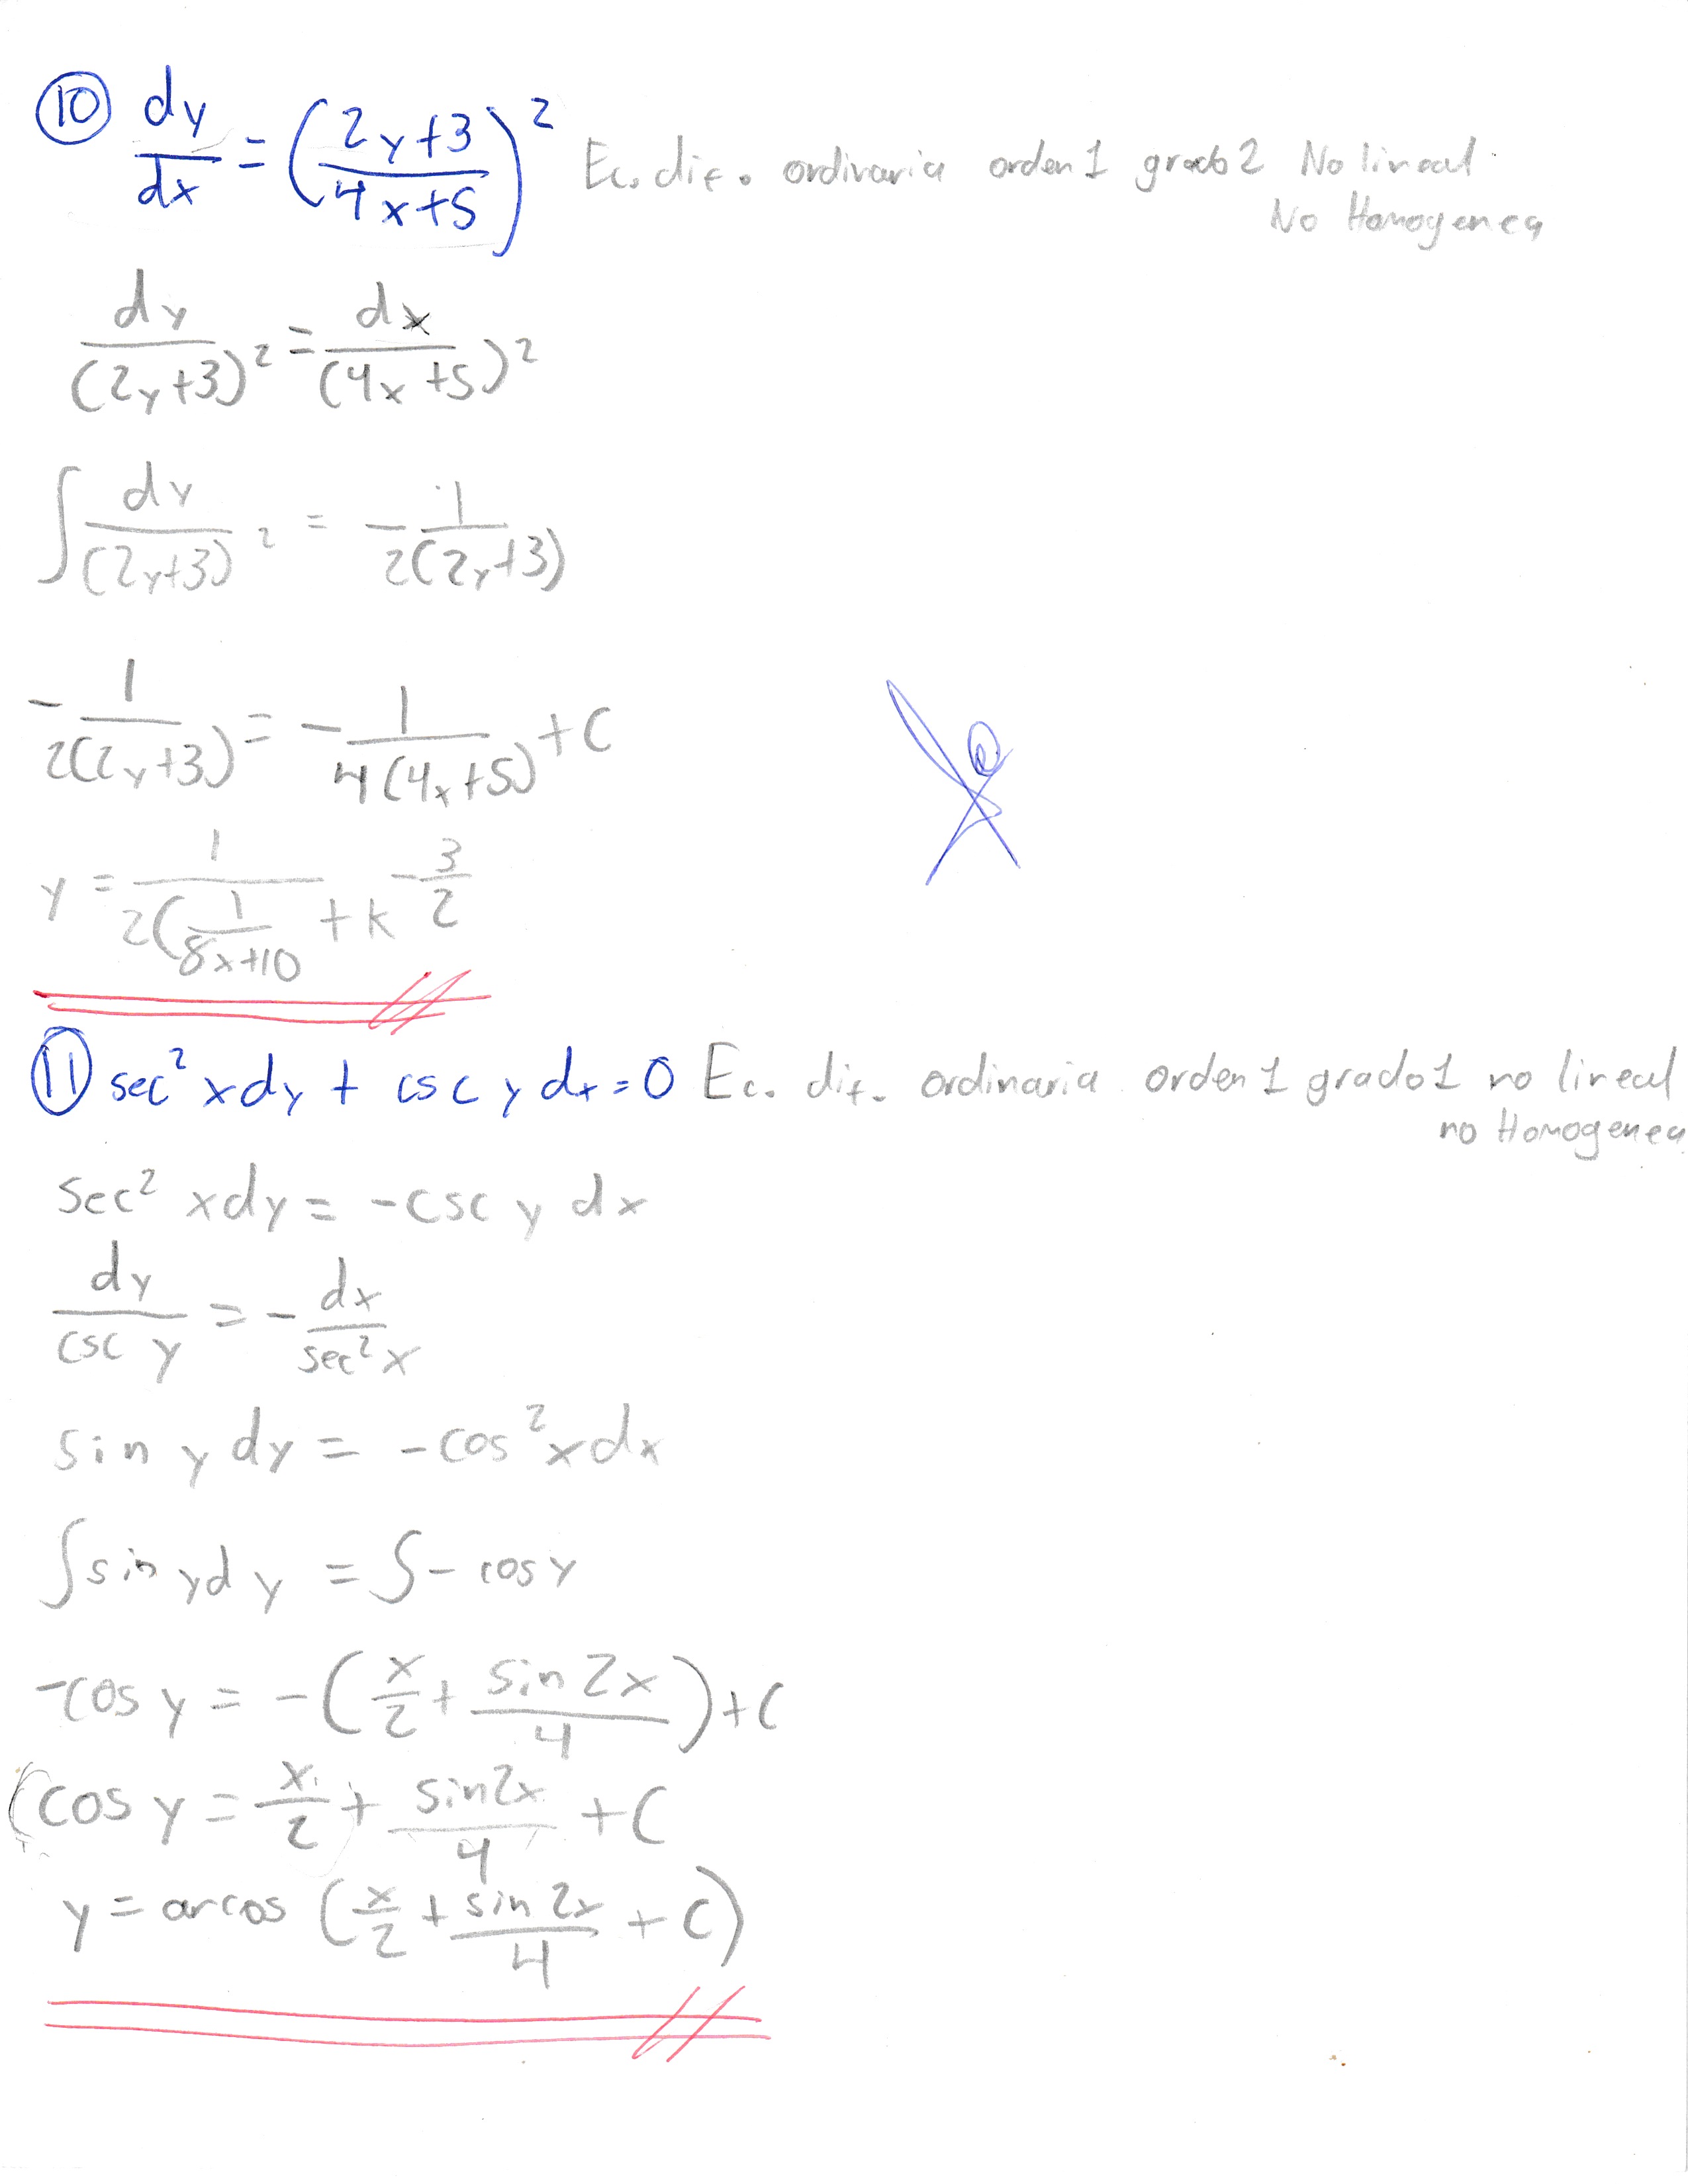 ⑩ dy/dx = ((2y+3)/(4x+5))² Ec. dif. ordinaria orden 1 grado 2 No lineal
No Homogenea
dy/(2y+3)² = dx/(4x+5)²
∫ dy/(2y+3)² = -1/2(2y+3)
-1/2(2y+3) = -1/4(4x+5) + C
y = 1/2(1/8x+10 + k - 3/2
⑪ sec² x dy + csc y dx = 0 Ec. dif. ordinaria orden 1 grado 1 no lineal
no Homogenea
sec² x dy = -csc y dx
dy/csc y = - dx/sec² x
sin y dy = -cos² x dx
∫ sin y dy = ∫ - cos y
-cos y = -(x/2 + sin 2x/4) + C
(cos y = x/2 + sin 2x/4 + C
y = arcos (x/2 + sin 2x/4 + C)